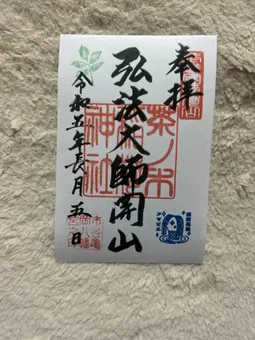 奉拝
弘法大師開山
茶ノ木
神社
令和五年長月五日